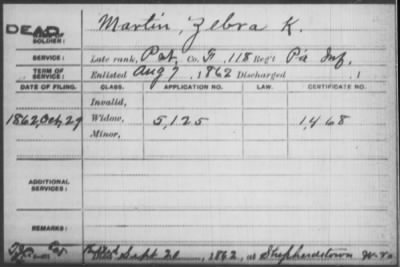 DEAD Martin, Zebra K.
SOLDIER:
SERVICE: Late rank, Pvt, Co. F, 118 Reg't Pa Inf.
TERM OF SERVICE: Enlisted Aug 7, 1862 Discharged , 1
DATE OF FILING. CLASS. APPLICATION NO. LAW. CERTIFICATE NO.
Invalid,
1862, Oct, 29 Widow, 5,125 1,468
Minor,
ADDITIONAL SERVICES:
REMARKS:
Died Sept 20, 1862, at Shepherdstown W. Va